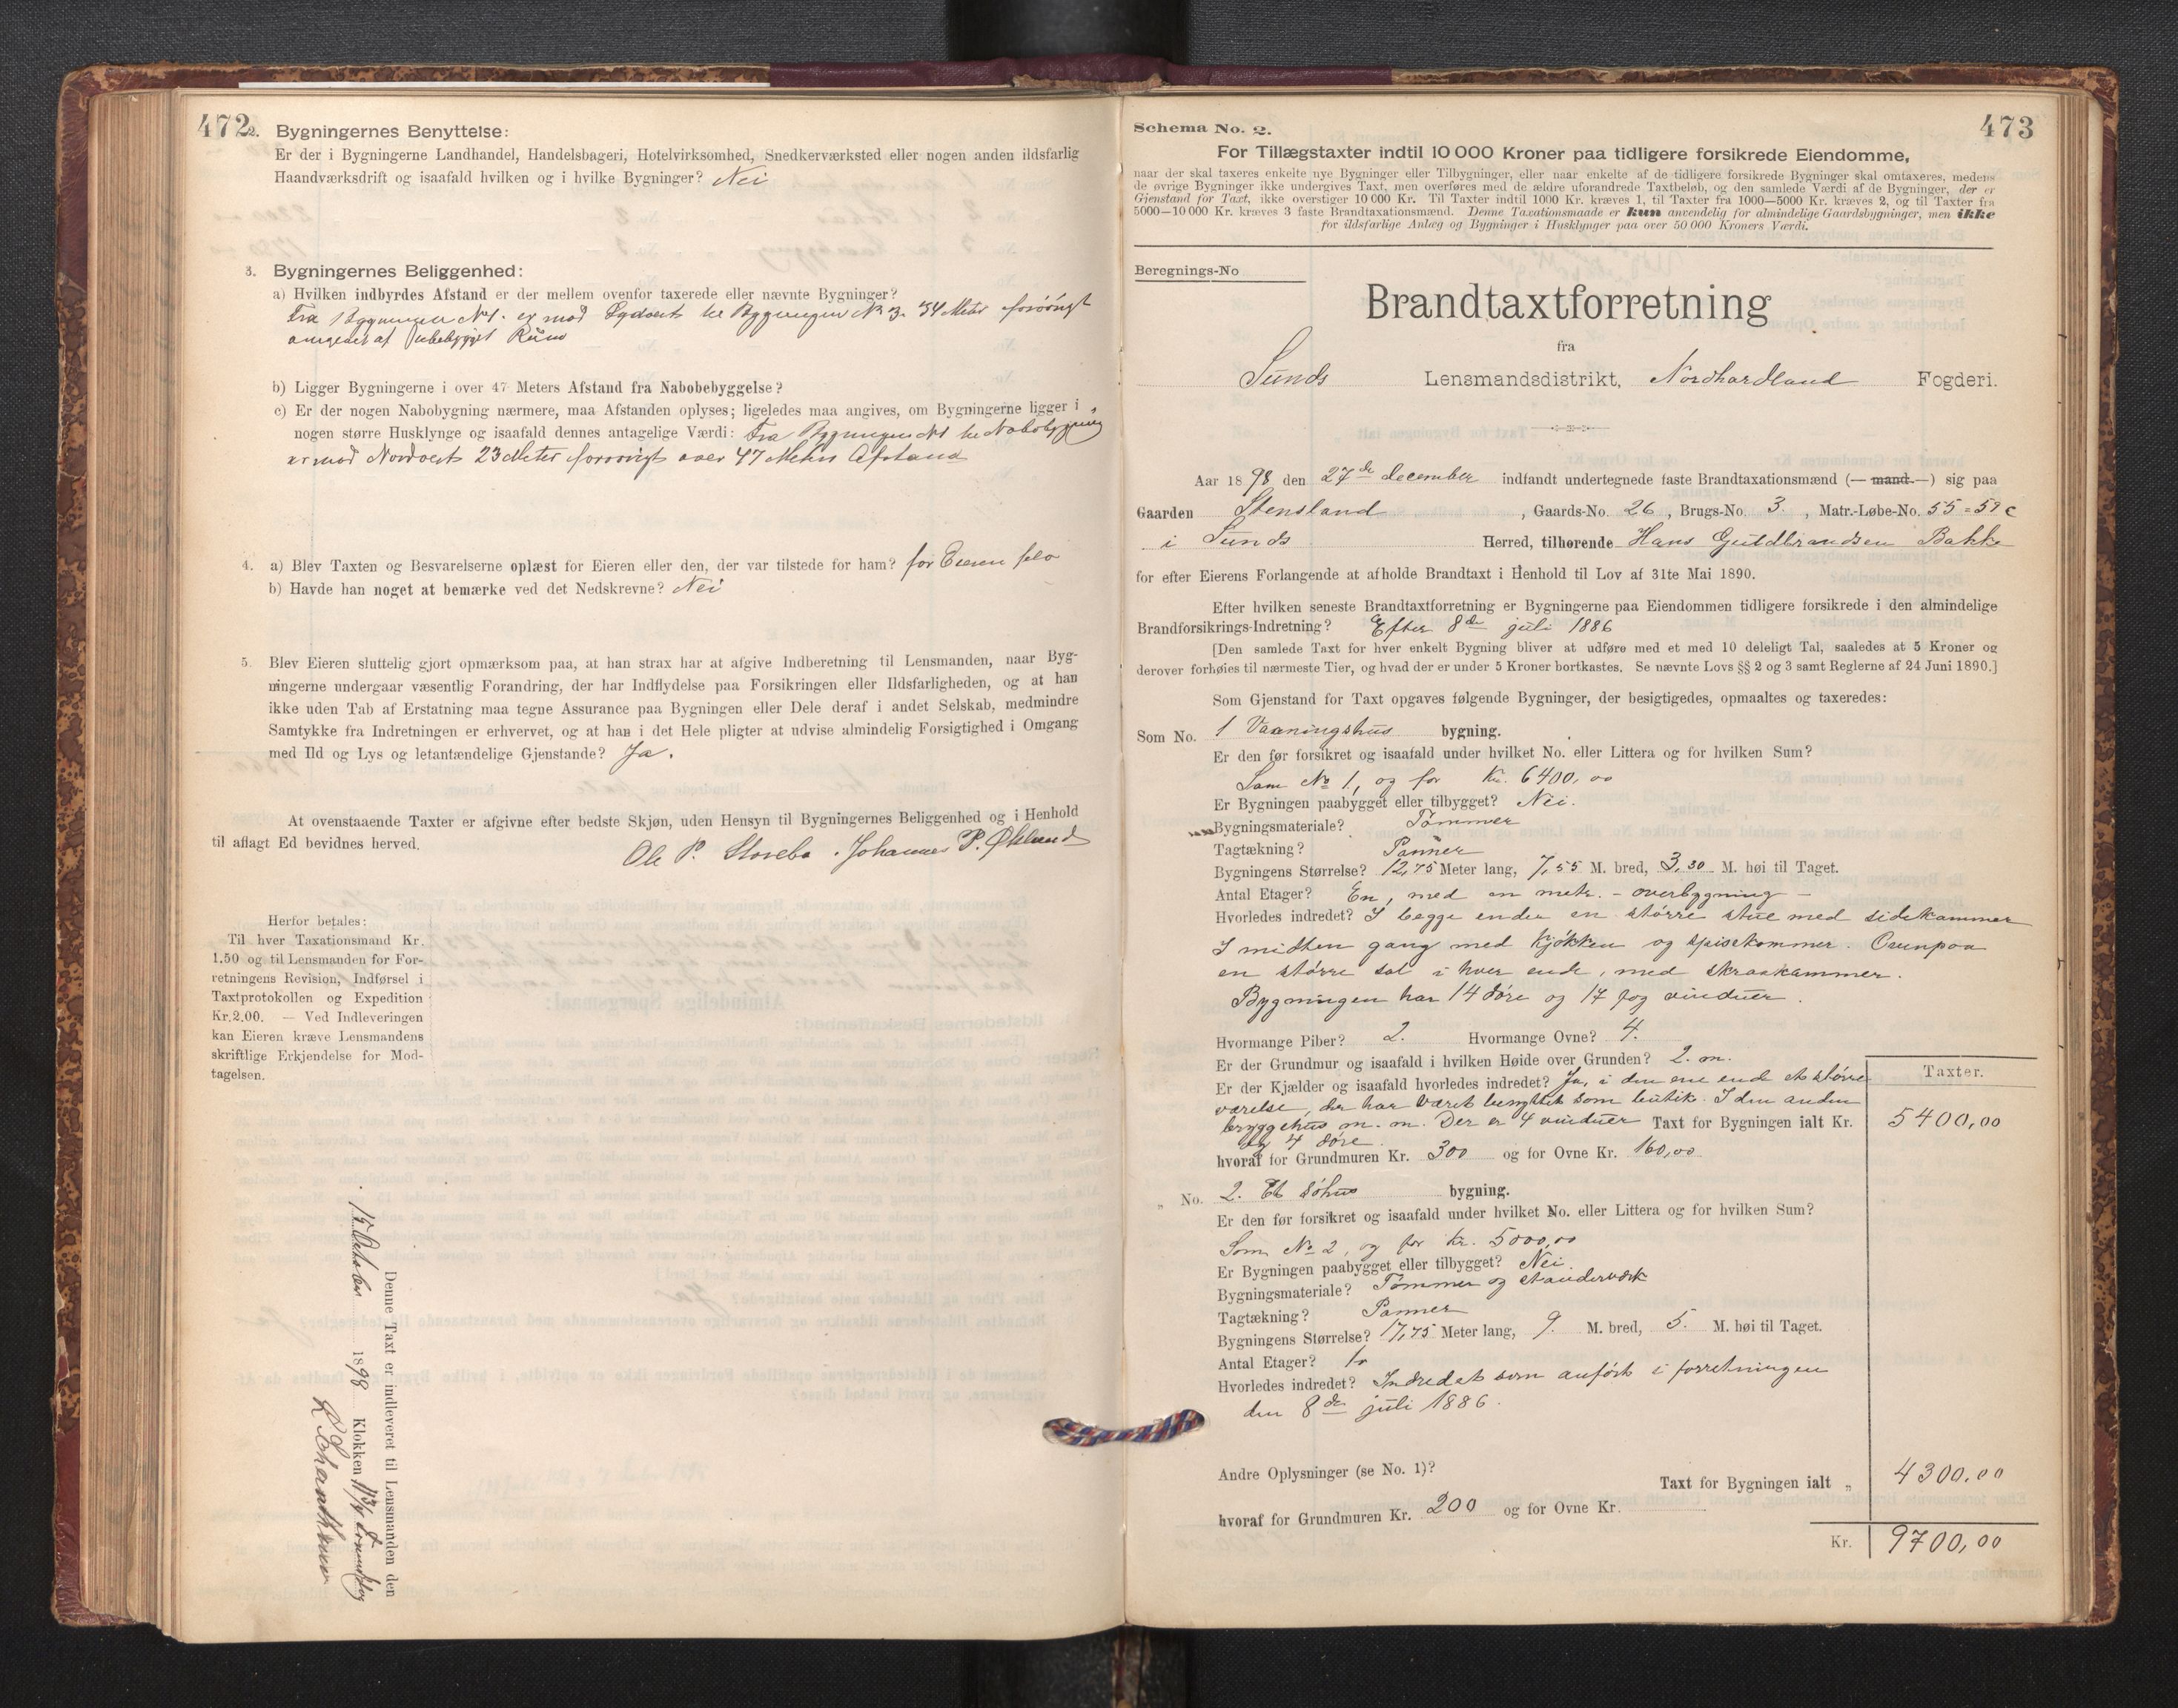 472
2. Bygningernes Benyttelse:
Er der i Bygningerne Landhandel, Handelsbageri, Hotelvirksomhed, Snedkerværksted eller nogen anden ildsfarlig
Haandværksdrift og isaafald hvilken og i hvilke Bygninger? Nei
3. Bygningernes Beliggenhed:
a) Hvilken indbyrdes Afstand er der mellem ovenfor taxerede eller nævnte Bygninger?
Fra Bygningen No 1. er mod Sydvest til Bygningen No 3. 34 Meter forøvrigt
omgivet af ubebygget Rum
b) Ligger Bygningerne i over 47 Meters Afstand fra Nabobebyggelse?
c) Er der nogen Nabobygning nærmere, maa Afstanden oplyses; ligeledes maa angives, om Bygningerne ligger i
nogen større Husklynge og isaafald dennes antagelige Værdi: Fra Bygningen No 1 til Nabobygning
er mod Nordvest 23 Meter forøvrigt over 47 Meters Afstand
4. a) Blev Taxten og Besvarelserne oplæst for Eieren eller den, der var tilstede for ham? for Eieren selv
b) Havde han noget at bemærke ved det Nedskrevne? Nei
5. Blev Eieren sluttelig gjort opmærksom paa, at han strax har at afgive Indberetning til Lensmanden, naar Byg-
ningerne undergaar væsentlig Forandring, der har Indflydelse paa Forsikringen eller Ildsfarligheden, og at han
ikke uden Tab af Erstatning maa tegne Assurance paa Bygningen eller Dele deraf i andet Selskab, medmindre
Samtykke fra Indretningen er erhvervet, og at han i det Hele pligter at udvise almindelig Forsigtighed i Omgang
med Ild og Lys og letantændelige Gjenstande? Ja.
At ovenstaaende Taxter er afgivne efter bedste Skjøn, uden Hensyn til Bygningernes Beliggenhed og i Henhold
til aflagt Ed bevidnes herved.
Ole P. Storebø. Johannes P. Øklund
Herfor betales:
Til hver Taxationsmand Kr.
1.50 og til Lensmanden for For-
retningens Revision, Indførsel i
Taxtprotokollen og Expedition
Kr. 2.00. — Ved Indleveringen
kan Eieren kræve Lensmandens
skriftlige Erkjendelse for Mod-
tagelsen.
Denne Taxt er indleveret til Lensmanden den
1898 Klokken 11 3/4 Formiddag
473
Schema No. 2.
For Tillægstaxter indtil 10 000 Kroner paa tidligere forsikrede Eiendomme,
naar der skal taxeres enkelte nye Bygninger eller Tilbygninger, eller naar enkelte af de tidligere forsikrede Bygninger skal omtaxeres, medens
de øvrige Bygninger ikke undergives Taxt, men overføres med de ældre uforandrede Taxtbeløb, og den samlede Værdi af de Bygninger, der er
Gjenstand for Taxt, ikke overstiger 10 000 Kr. Til Taxter indtil 1000 Kr. kræves 1, til Taxter fra 1000—5000 Kr. kræves 2, og til Taxter fra
5000—10 000 Kr. kræves 3 faste Brandtaxationsmænd. Denne Taxationsmaade er kun anvendelig for almindelige Gaardsbygninger, men ikke
for ildsfarlige Anlæg og Bygninger i Husklynger paa over 50 000 Kroners Værdi.
Beregnings-No
Brandtaxtforretning
fra
Sunds Lensmandsdistrikt, Nordhordland Fogderi.
Aar 1898 den 27de december indfandt undertegnede faste Brandtaxationsmænd (— mand —) sig paa
Gaarden Stensland, Gaards-No. 26, Brugs-No. 3., Matr.-Løbe-No. 55 = 59 c
i Sunds Herred, tilhørende Hans Guldbrandsen Bakke
for efter Eierens Forlangende at afholde Brandtaxt i Henhold til Lov af 31te Mai 1890.
Efter hvilken seneste Brandtaxtforretning er Bygningerne paa Eiendommen tidligere forsikrede i den almindelige
Brandforsikrings-Indretning? Efter 8de juli 1886
[Den samlede Taxt for hver enkelt Bygning bliver at udføre med et med 10 deleligt Tal, saaledes at 5 Kroner og
derover forhøies til nærmeste Tier, og hvad der er under 5 Kroner bortkastes. Se nævnte Lovs §§ 2 og 3 samt Reglerne af 24 Juni 1890.]
Som Gjenstand for Taxt opgaves følgende Bygninger, der besigtigedes, opmaaltes og taxeredes:
Som No. 1 Vaaningshus bygning.
Er den før forsikret og isaafald under hvilket No. eller Littera og for hvilken Sum?
Som No 1, og for Kr. 6400,00
Er Bygningen paabygget eller tilbygget? Nei.
Bygningsmateriale? Tømmer
Tagtækning? Panner
Bygningens Størrelse? 12,75 Meter lang, 7,55 M. bred, 3,30 M. høi til Taget.
Antal Etager? En, med en metr. - overbygning -
Hvorledes indredet? I begge ender en større stue med sidekammer
I midten gang med kjøkken og spisekammer. Ovenpaa
en større sal i hver ende, med skraakammer.
Bygningen har 14 døre og 17 fag vinduer.
Hvormange Piber? 2. Hvormange Ovne? 4.
Er der Grundmur og isaafald i hvilken Høide over Grunden? 2. m.
Er der Kjælder og isaafald hvorledes indredet? Ja, i den ene ende et større
værelse, der har været benyttet som butik. I den anden
bryggehus m. m. Der er 4 vinduer Taxt for Bygningen ialt Kr.
og 4 døre.
Taxter.
5400,00
hvoraf for Grundmuren Kr. 300 og for Ovne Kr. 160,00
„ No. 2. Et søhus bygning.
Er den før forsikret og isaafald under hvilket No. eller Littera og for hvilken Sum?
Som No 2, og for Kr. 5000,00
Er Bygningen paabygget eller tilbygget? Nei.
Bygningsmateriale? Tømmer og standerværk
Tagtækning? Panner
Bygningens Størrelse? 17,75 Meter lang, 9. M. bred, 5. M. høi til Taget.
Antal Etager? to
Hvorledes indredet? Indredet som anført i forretningen
den 8de juli 1886.
Andre Oplysninger (se No. 1)?
Taxt for Bygningen ialt „ 4300,00
hvoraf for Grundmuren Kr. 200 og for Ovne Kr.
Kr. 9700,00